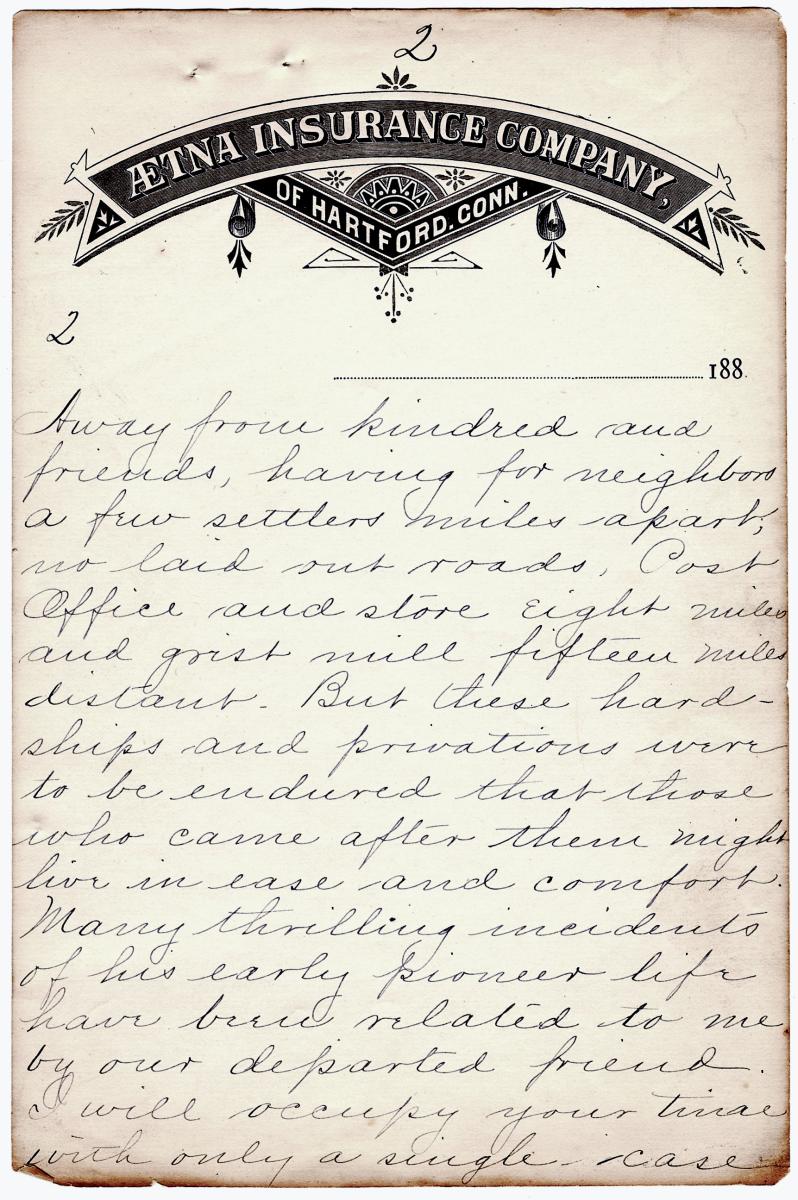 2
ÆTNA INSURANCE COMPANY,
OF HARTFORD. CONN.
2
188
Away from kindred and
friends, having for neighbors
a few settlers miles apart;
no laid out roads, Post
Office and store Eight miles
and grist mill fifteen miles
distant. But these hard-
ships and privations were
to be endured that those
who came after them might
live in ease and comfort.
Many thrilling incidents
of his early pioneer life
have been related to me
by our departed friend.
I will occupy your time
with only a single case